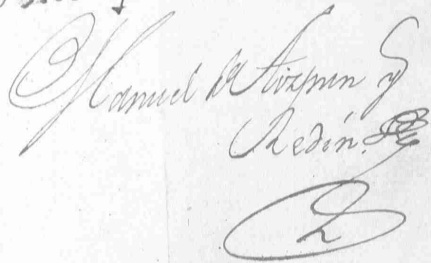 Manuel de Aizpun y
Redín.